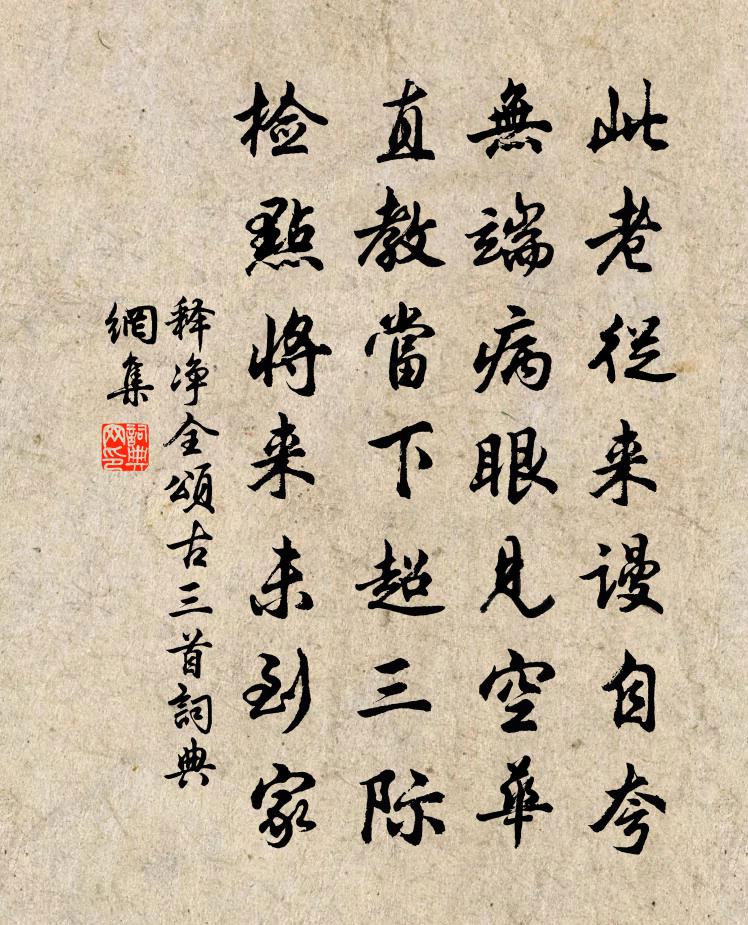 此老從来謾自夸
無端病眼見空華
直教當下超三际
检點將来未到家
释净全頌古三首詞典
網集
詞典网印